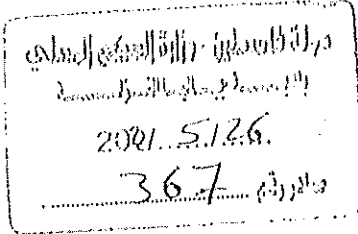 دولة فلسطين - وزارة الحكم المحلي
2021..5./.26.
صادر رقم 367